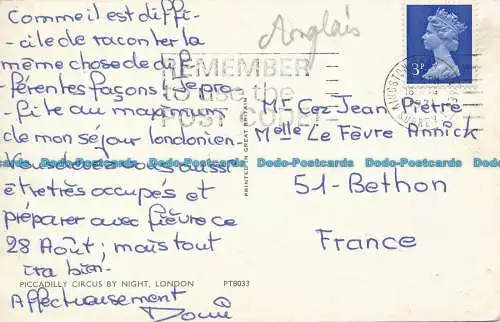 Anglais
Comme il est diffi-
cile de raconter la
même chose de dif-
férentes façons! Je pro-
fite au maximum
de mon séjour londonien-
Vous devez vous aussi
être très occupés et
préparer avec fièvre ce
28 Août; mais tout
ira bien-
Affectueusement
REMEMBER
to use the
POST CODE
3P
SURREY
Mr Cez Jean-Pierre
Melle Le Fèvre Annick
51-Bethon
France
PRINTED IN GREAT BRITAIN
PICCADILLY CIRCUS BY NIGHT, LONDON PT8033
Dodo-Postcards Dodo-Postcards Dodo-Postcards Dodo-Postcards Dodo-Postcards